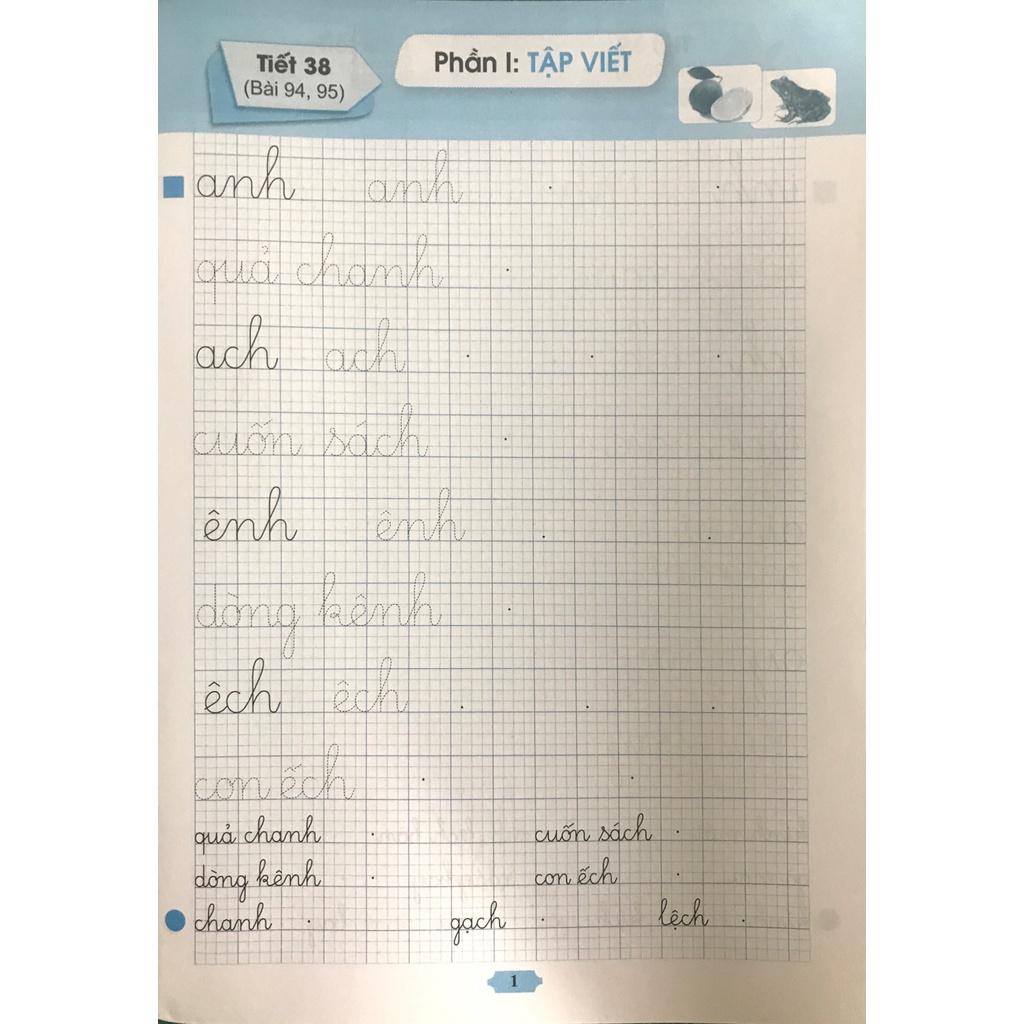 Tiết 38
(Bài 94, 95)
Phần I: TẬP VIẾT
anh anh
quả chanh
ach ach
cuốn sách
ênh ênh
dòng kênh
êch êch
con ếch
quả chanh cuốn sách
dòng kênh con ếch
chanh gạch lệch
1